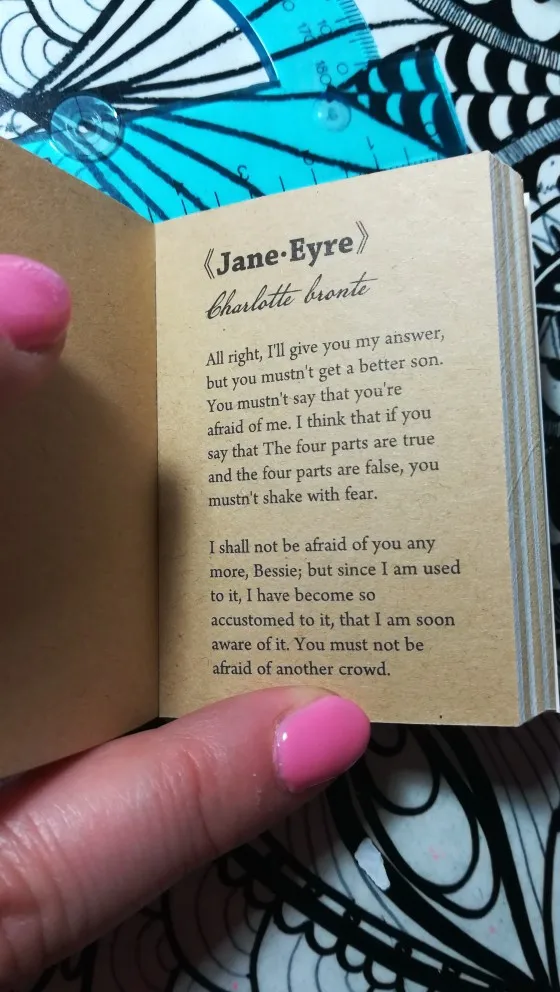 《Jane·Eyre》
Charlotte bronte
All right, I'll give you my answer,
but you mustn't get a better son.
You mustn't say that you're
afraid of me. I think that if you
say that The four parts are true
and the four parts are false, you
mustn't shake with fear.
I shall not be afraid of you any
more, Bessie; but since I am used
to it, I have become so
accustomed to it, that I am soon
aware of it. You must not be
afraid of another crowd.